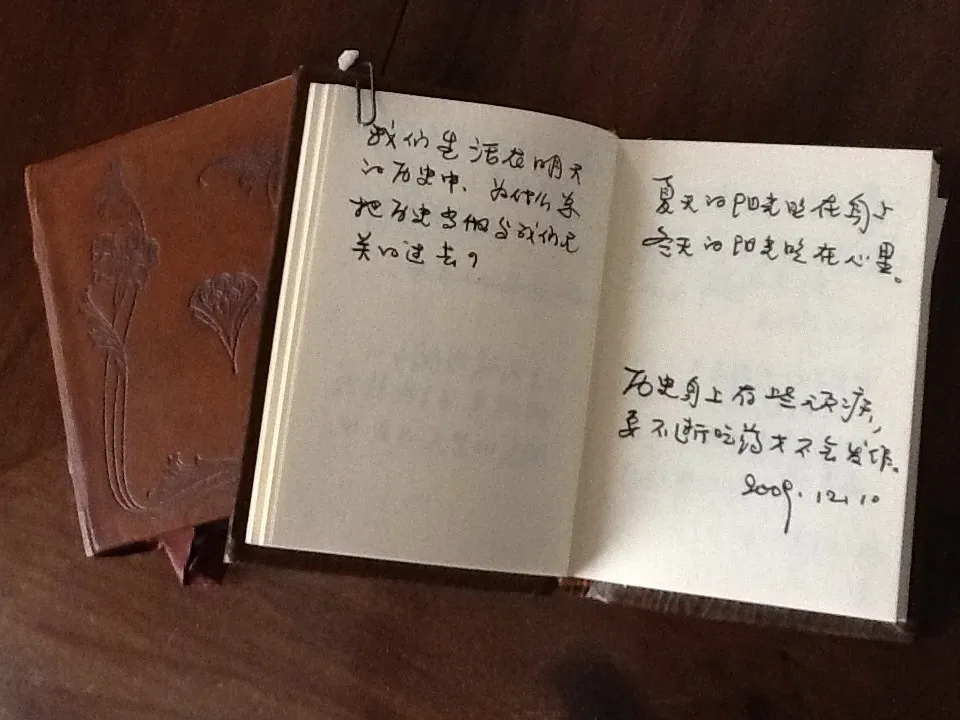 我们生活在明天
的历史中、为什么
把历史当做与我们无
关的过去?
夏天的阳光晒在身上
冬天的阳光晒在心里。
历史身上有些顽疾,
要不断吃药才不会发作。
2009.12.10